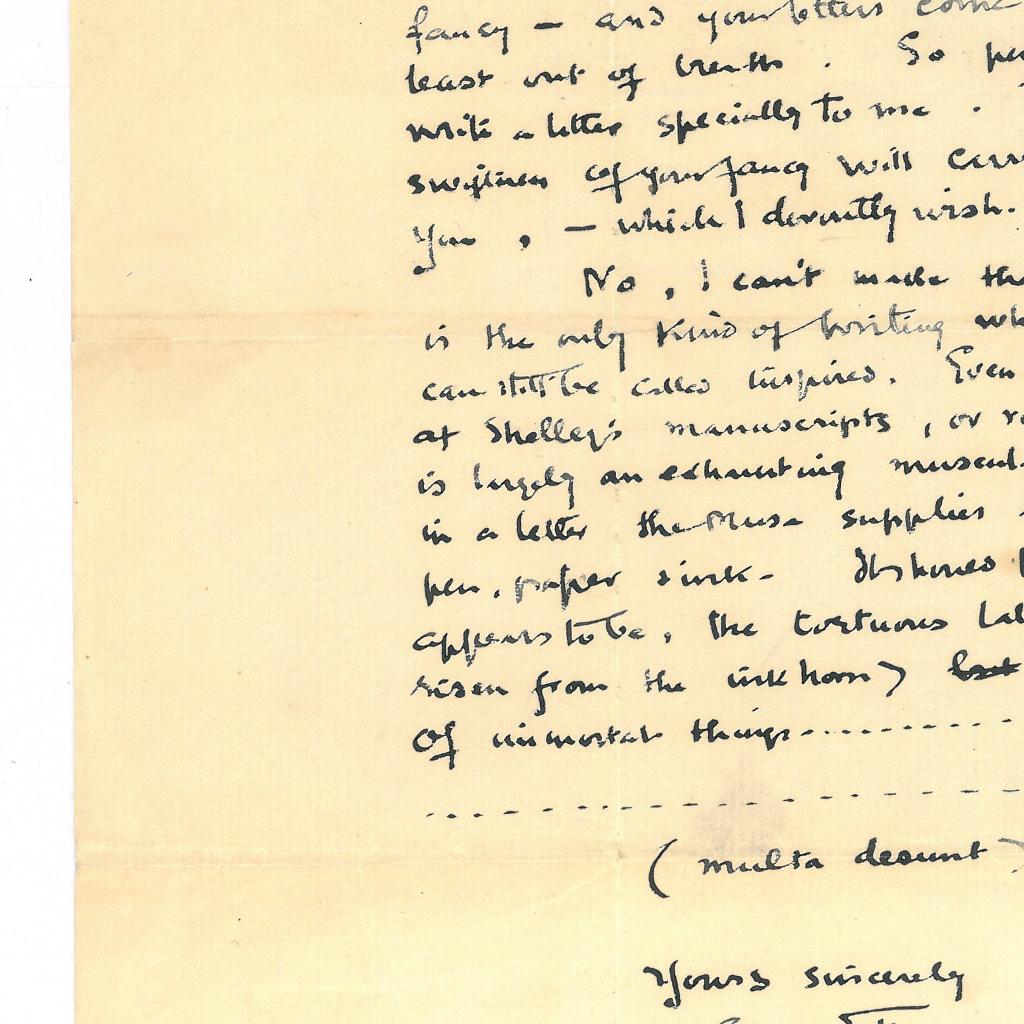 fancy — and your letters come
least out of breath. So
write a letter specially to me.
swiftness of your fancy will
you, — which I devoutly wish.
No, I can't make
is the only kind of writing
can still be called inspired. Even
at Shelley's manuscripts, or
is largely an exhausting
in a letter the Muse supplies
pen, paper & ink.
appears to be, the tortuous
risen from the inkhorn)
of immortal things
(multa desunt)
Yours sincerely